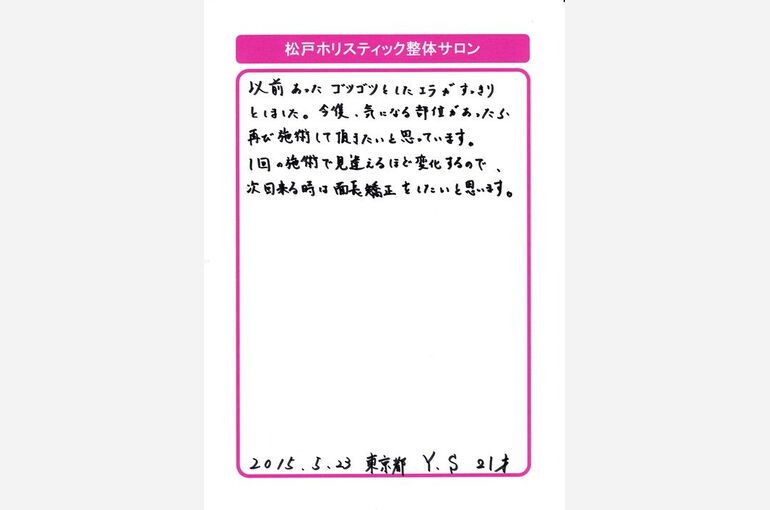 松戸ホリスティック整体サロン
以前あったゴツゴツとしたエラがすっきり
としました。今後、気になる部位があったら
再び施術して頂きたいと思っています。
1回の施術で見違えるほど変化するので、
次回来る時は面長矯正をしたいと思います。
2015.5.23 東京都 Y.S 21才